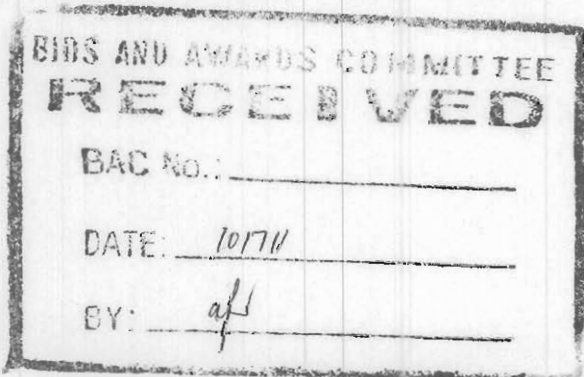 BIDS AND AWARDS COMMITTEE
RECEIVED
BAC No.:
DATE:
BY: